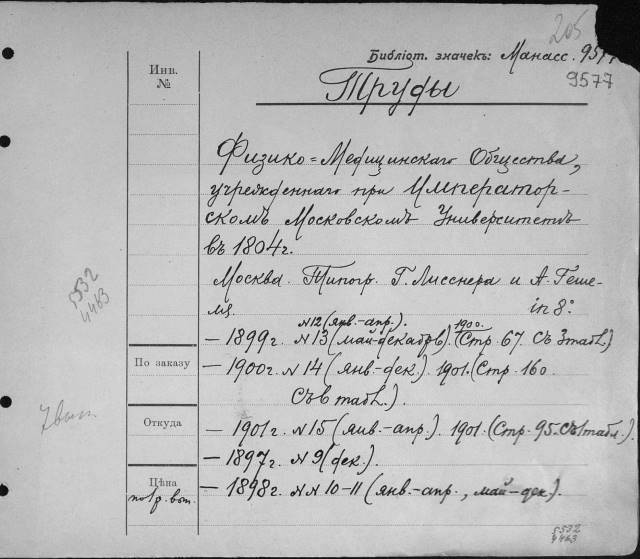 205
Библіот. значекъ: Манасс. 9577
9577
Инв.
№
Труды
Физико=Медицинскаго Общества,
учрежденнаго при Император-
скомъ Московскомъ Университетѣ
въ 1804 г.
Москва. Типогр. Г. Лисснера и А. Геше-
ля. in 8º
5532
4463
N 12 (янв.-апр.).
— 1899 г. N 13 (май-декабрь). 1900. (Стр. 67 съ 3 табл.)
По заказу
— 1900 г. N 14 (янв.-дек.). 1901. (Стр. 160
съ 6 табл.).
7 вып.
Откуда
— 1901 г. N 15 (янв.-апр.). 1901. (Стр. 95. съ 1 табл.).
— 1897 г. N 9 (дек.).
Цѣна
по 1 р. вып.
— 1898 г. NN 10-11 (янв.-апр., май-дек.).
5532
4463